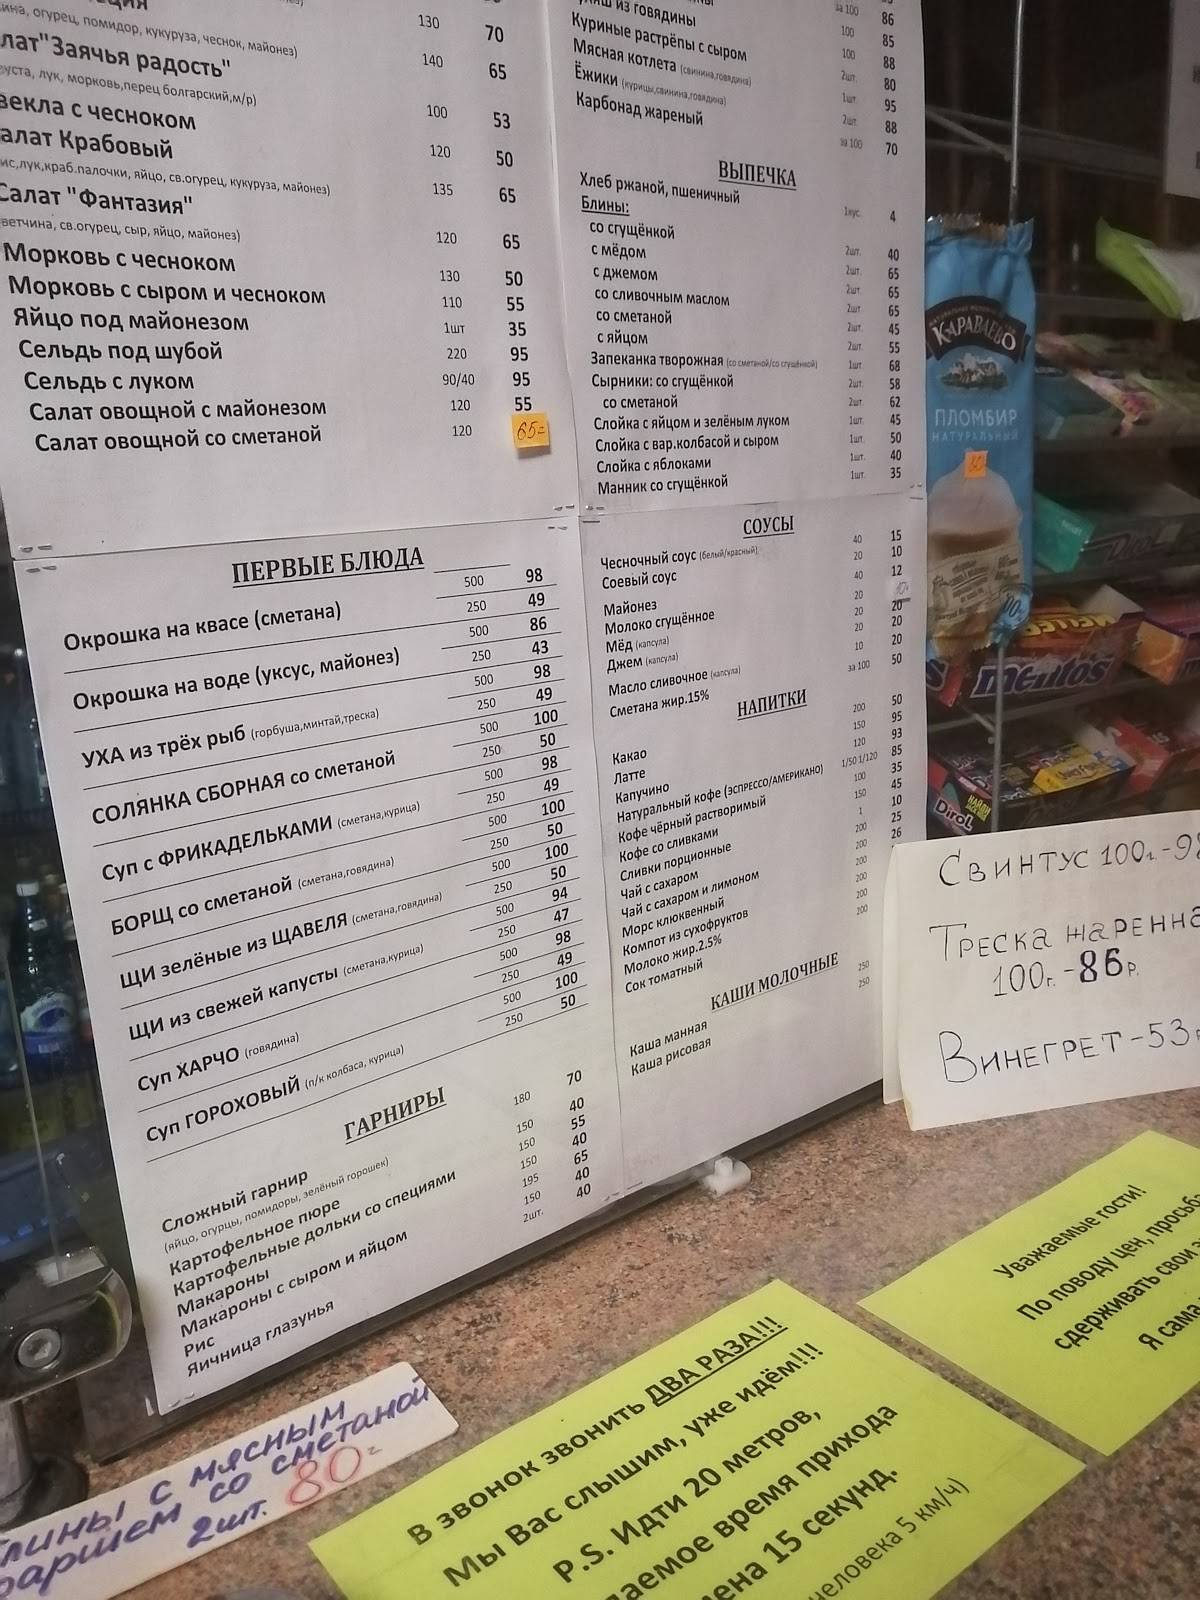 ина, огурец, помидор, кукуруза, чеснок, майонез) 130 70
лат"Заячья радость" 140 65
уста, лук, морковь,перец болгарский,м/р)
векла с чесноком 100 53
алат Крабовый 120 50
ис,лук,краб.палочки, яйцо, св.огурец, кукуруза, майонез)
Салат "Фантазия" 135 65
ветчина, св.огурец, сыр, яйцо, майонез)
Морковь с чесноком 120 65
Морковь с сыром и чесноком 130 50
Яйцо под майонезом 110 55
Сельдь под шубой 1шт 35
Сельдь с луком 220 95
Салат овощной с майонезом 90/40 95
Салат овощной со сметаной 120 55
120 65=
ПЕРВЫЕ БЛЮДА
Окрошка на квасе (сметана) 500 98
250 49
Окрошка на воде (уксус, майонез) 500 86
250 43
УХА из трёх рыб (горбуша,минтай,треска) 500 98
250 49
СОЛЯНКА СБОРНАЯ со сметаной 500 100
250 50
Суп с ФРИКАДЕЛЬКАМИ (сметана,курица) 500 98
250 49
БОРЩ со сметаной (сметана,говядина) 500 100
250 50
ЩИ зелёные из ЩАВЕЛЯ (сметана,говядина) 500 100
250 50
ЩИ из свежей капусты (сметана,курица) 500 94
250 47
Суп ХАРЧО (говядина) 500 98
250 49
Суп ГОРОХОВЫЙ (п/к колбаса, курица) 500 100
250 50
ГАРНИРЫ
Сложный гарнир 180 70
(яйцо, огурцы, помидоры, зелёный горошек)
Картофельное пюре 150 40
Картофельные дольки со специями 150 55
Макароны 150 40
Макароны с сыром и яйцом 195 65
Рис 150 40
Яичница глазунья 2шт. 40
из говядины за 100 86
Куриные растрёпы с сыром 100 85
Мясная котлета (свинина,говядина) 100 88
Ёжики (курицы,свинина,говядина) 2шт. 80
Карбонад жареный 1шт. 95
2шт. 88
за 100 70
ВЫПЕЧКА
Хлеб ржаной, пшеничный 1кус. 4
Блины:
со сгущёнкой 2шт. 40
с мёдом 2шт. 65
с джемом 2шт. 65
со сливочным маслом 2шт. 65
со сметаной 2шт. 45
с яйцом 2шт. 55
Запеканка творожная (со сметаной/со сгущёнкой) 1шт. 68
Сырники: со сгущёнкой 2шт. 58
со сметаной 2шт. 62
Слойка с яйцом и зелёным луком 1шт. 45
Слойка с вар.колбасой и сыром 1шт. 50
Слойка с яблоками 1шт. 40
Манник со сгущёнкой 1шт. 35
СОУСЫ
Чесночный соус (белый/красный) 40 15
Соевый соус 20 10
Майонез 40 12
Молоко сгущённое 20
Мёд (капсула) 20 20
Джем (капсула) 20 20
Масло сливочное (капсула) 10 20
Сметана жир.15% за 100 50
НАПИТКИ
Какао 200 50
Латте 150 95
Капучино 120 93
Натуральный кофе (ЭСПРЕССО/АМЕРИКАНО) 1/50 1/120 85
Кофе чёрный растворимый 100 35
Кофе со сливками 150 45
Сливки порционные 1 10
Чай с сахаром 200 25
Чай с сахаром и лимоном 200 26
Морс клюквенный 200
Компот из сухофруктов 200
Молоко жир.2,5% 200
Сок томатный 200
КАШИ МОЛОЧНЫЕ
Каша манная 250
Каша рисовая 250
КАРАВАЕВО
ПЛОМБИР
НАТУРАЛЬНЫЙ
mentos
Dirol
Свинтус 100г.-98
Треска жаренна
100г.-86р.
Винегрет-53р
Блины с мясным
фаршем со сметаной
2шт. 80=
В ЗВОНОК ЗВОНИТЬ ДВА РАЗА!!!
Мы Вас слышим, уже идём!!!
P.S. Идти 20 метров,
даемое время прихода
мена 15 секунд.
человека 5 км/ч)
Уважаемые гости!
По поводу цен, просьб
сдерживать свои э
Я сама